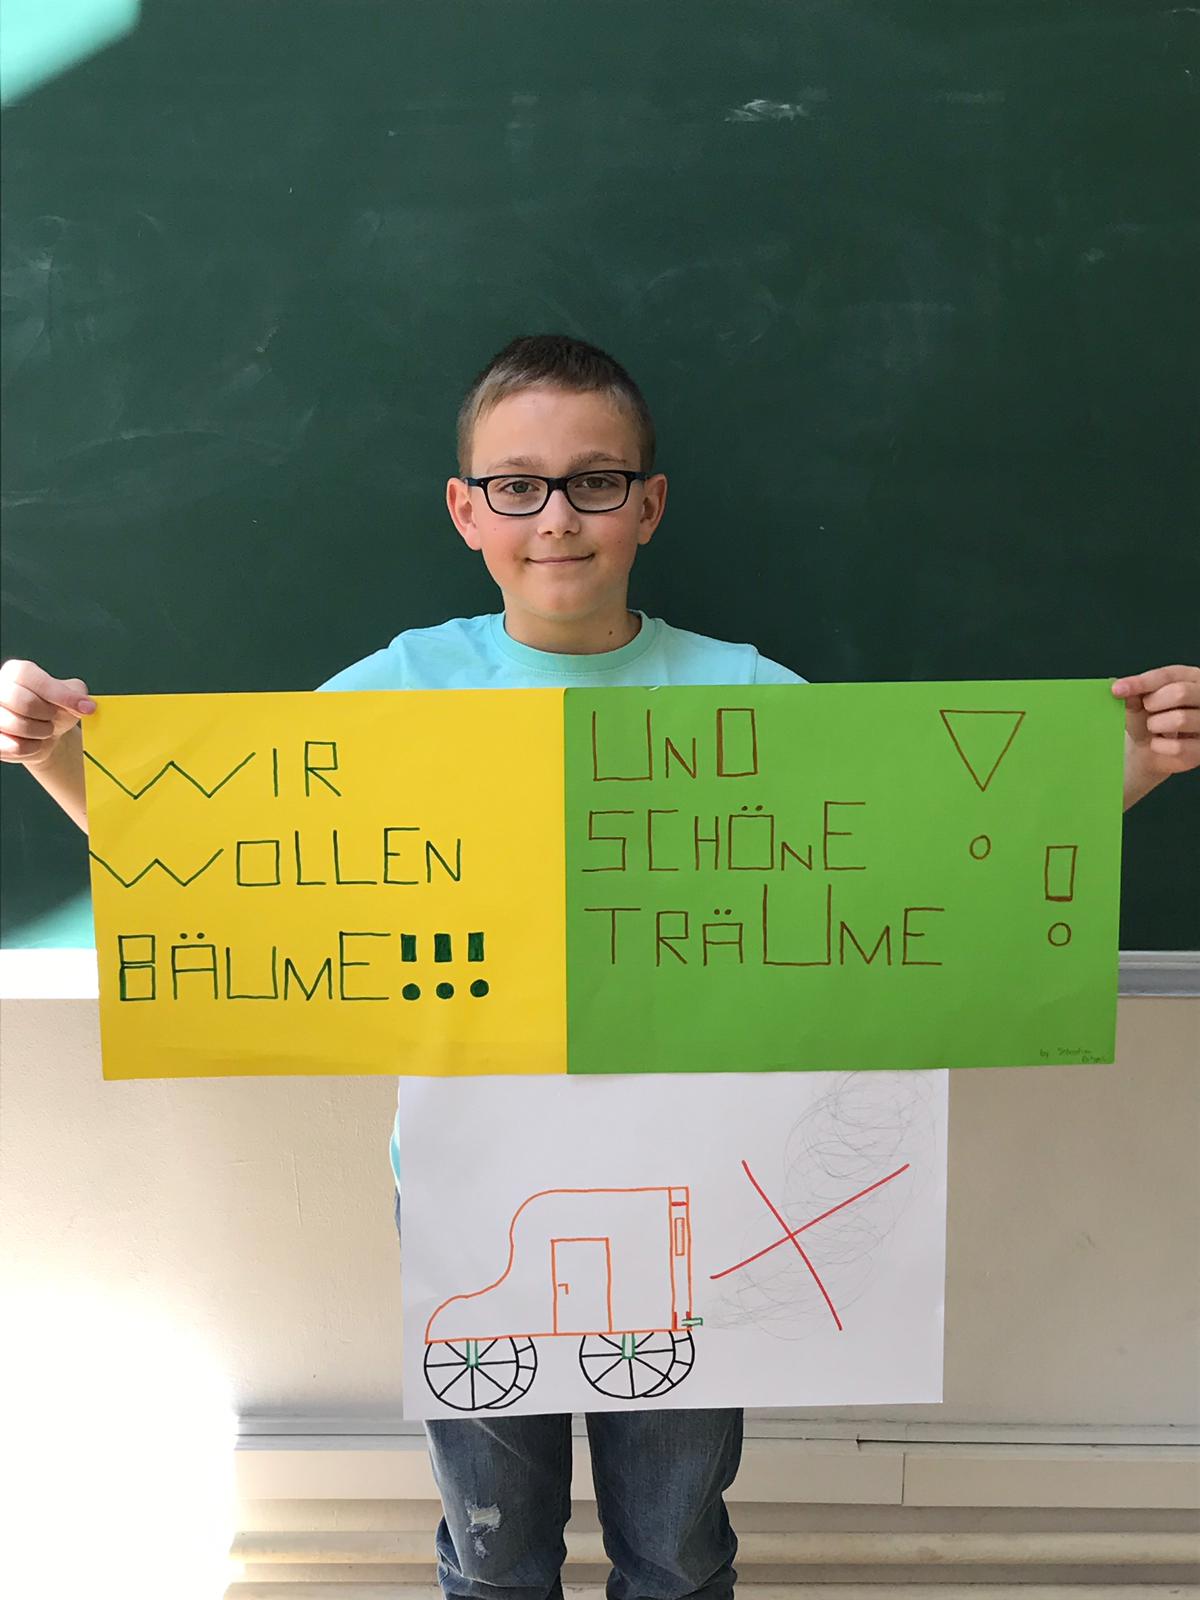 WIR
WOLLEN
BÄUME!!!
UND
SCHÖNE
TRÄUME!!
by Sebastian